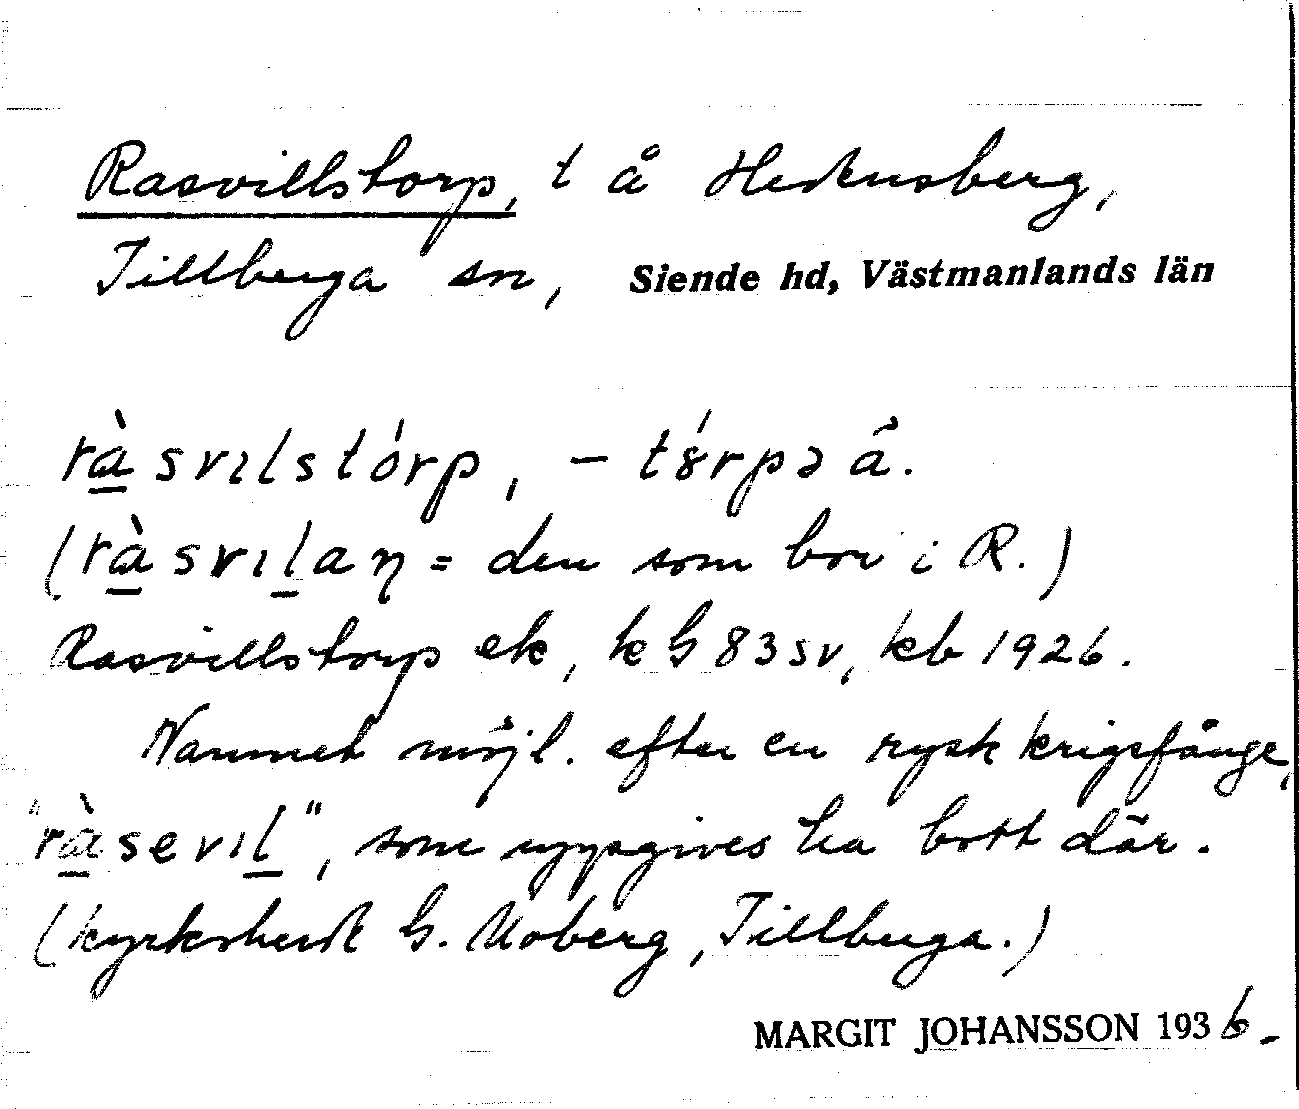 Rasvillstorp, t å Hedensberg,
Tillberga sn, Siende hd, Västmanlands län
ràsvılstórp, – tórpə â.
(ràsvılaη = den som bor i R.)
Rasvillstorp ek, k G 83 sv, kb 1926.
Namnet möjl. efter en rysk krigsfånge,
"ràsevıl", som uppgives ha bott där.
(kyrkoherde G. Moberg, Tillberga.)
MARGIT JOHANSSON 1936.